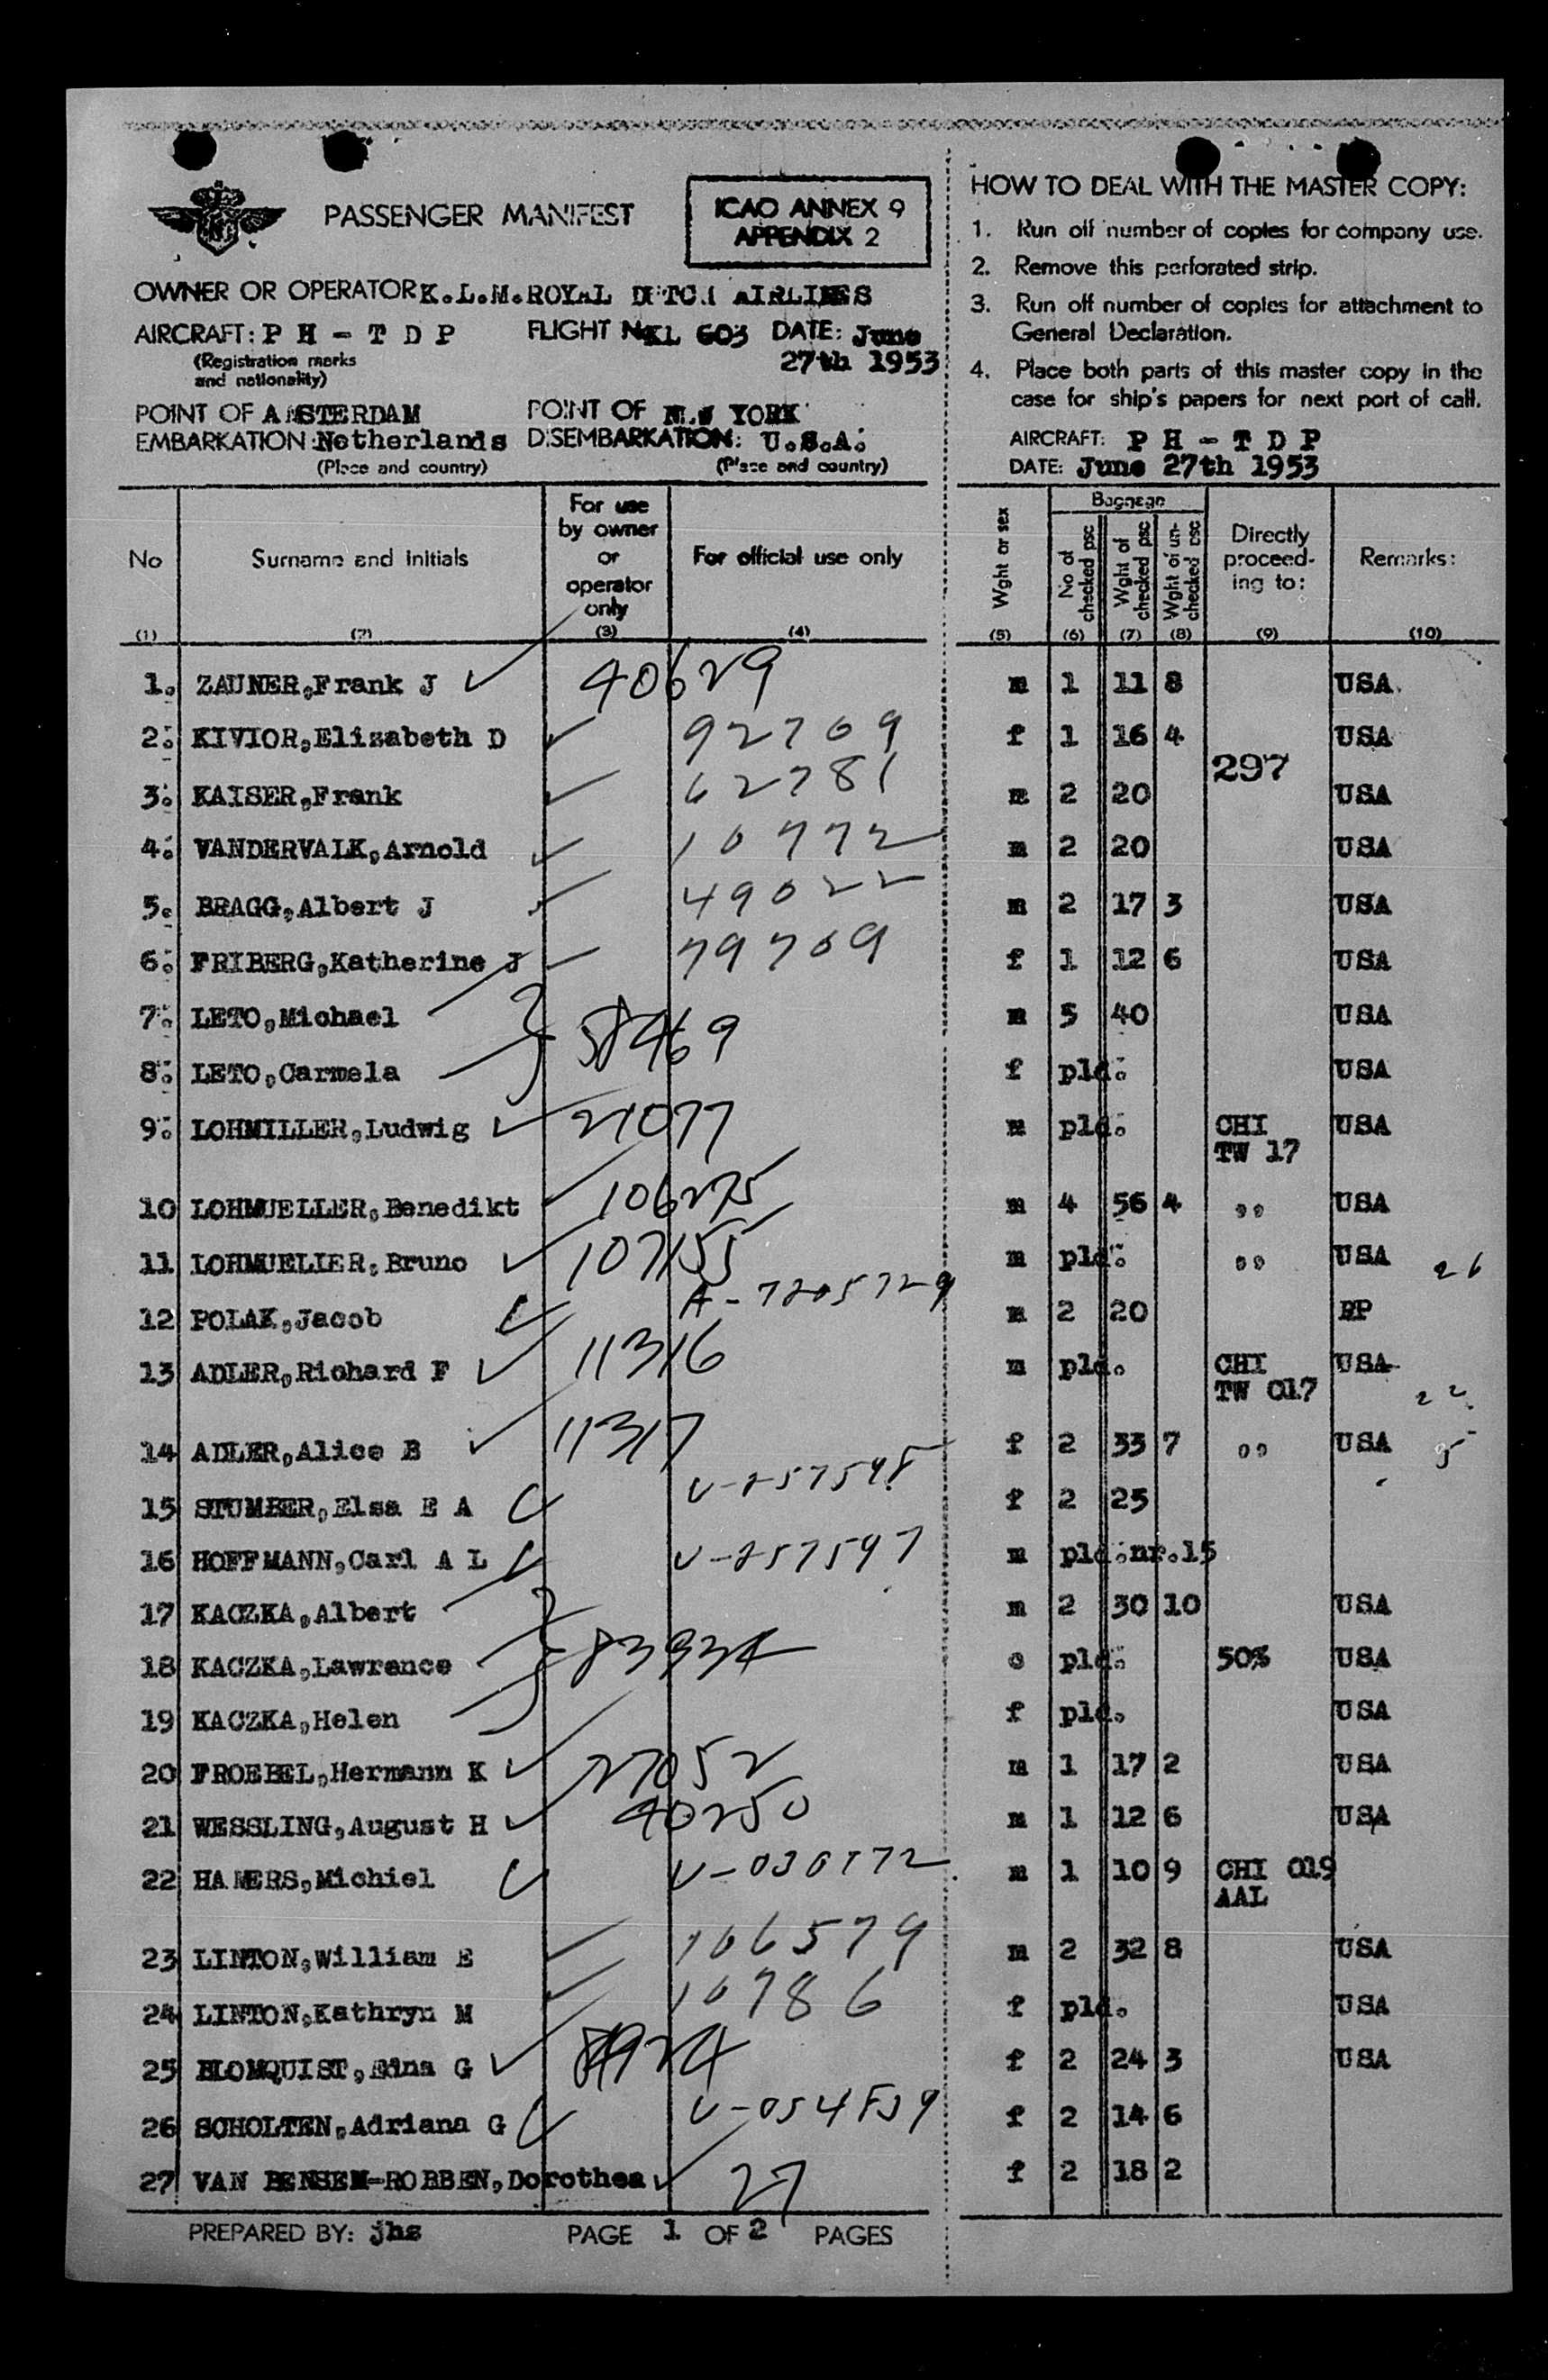 PASSENGER MANIFEST
ICAO ANNEX 9
APPENDIX 2
OWNER OR OPERATOR K.L.M. ROYAL DUTCH AIRLINES
AIRCRAFT: P H - T D P FLIGHT No KL 603 DATE: June
(Registration marks 27th 1953
and nationality)
POINT OF AMSTERDAM POINT OF NEW YORK
EMBARKATION: Netherlands DISEMBARKATION: U.S.A.
(Place and country) (Place and country)
HOW TO DEAL WITH THE MASTER COPY:
1. Run off number of copies for company use.
2. Remove this perforated strip.
3. Run off number of copies for attachment to
General Declaration.
4. Place both parts of this master copy in the
case for ship's papers for next port of call.
AIRCRAFT: P H - T D P
DATE: June 27th 1953
No Surname and initials For use by owner or operator only For official use only Wght or sex Baggage No of checked psc Wght of checked psc Wght of un-checked psc Directly proceed-ing to: Remarks:
(1) (2) (3) (4) (5) (6) (7) (8) (9) (10)
1. ZAUNER,Frank J 40629 m 1 11 8 USA
2. KIVIOR,Elizabeth D 92709 f 1 16 4 USA
297
3. KAISER,Frank 62781 m 2 20 USA
4. VANDERVALK,Arnold 10772 m 2 20 USA
5. BRAGG,Albert J 49022 m 2 17 3 USA
6. FRIBERG,Katherine J 79709 f 1 12 6 USA
7. LETO,Michael m 5 40 USA
58469
8. LETO,Carmela f pld. USA
9. LOHMILLER,Ludwig 21077 m pld. CHI USA
TW 17
10 LOHMUELLER,Benedikt 106275 m 4 56 4 ,, USA
11 LOHMUELLER,Bruno 107155 m pld. ,, USA 26
12 POLAK,Jacob A-7205729 m 2 20 RP
13 ADLER,Richard F 11316 m pld. CHI USA
TW 017 22
14 ADLER,Alice B 11317 f 2 33 7 ,, USA 5
15 STUMBER,Elsa E A V-257598 f 2 25
16 HOFFMANN,Carl A L V-257597 m pld.nr.15
17 KACZKA,Albert m 2 30 10 USA
18 KACZKA,Lawrence 83934 c pld. 50% USA
19 KACZKA,Helen f pld. USA
20 FROEBEL,Hermann K 27052 m 1 17 2 USA
21 WESSLING,August H 40250 m 1 12 6 USA
22 HAMERS,Michiel m 1 10 9 CHI 019
AAL
23 LINTON,William E 106579 m 2 32 8 USA
24 LINTON,Kathryn M 10786 f pld. USA
25 BLOMQUIST,Edna G f 2 24 3 USA
26 SCHOLTEN,Adriana G f 2 14 6
27 VAN BENSEM-ROBBEN,Dorothea 27 f 2 18 2
PREPARED BY: jhs PAGE 1 OF 2 PAGES